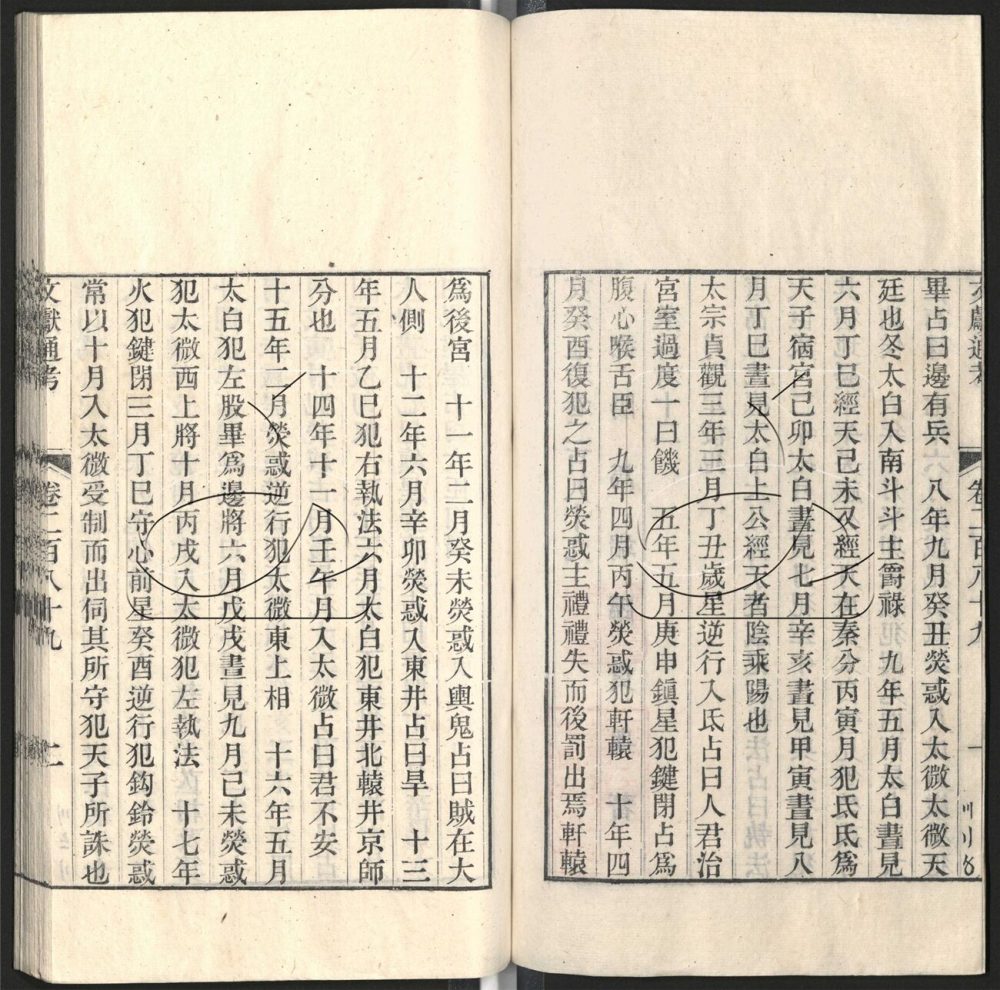 文獻通考 卷二百八十九 一
畢占曰邊有兵 八年九月癸丑熒惑入太微太微天
廷也冬太白入南斗斗主爵祿 九年五月太白晝見
六月丁巳經天己未又經天在秦分丙寅月犯氐氐爲
天子宿宮己卯太白晝見七月辛亥晝見甲寅晝見八
月丁巳晝見太白上公經天者陰乘陽也
太宗貞觀三年三月丁丑歲星逆行入氐占曰人君治
宮室過度一曰饑 五年五月庚申鎮星犯鍵閉占爲
腹心喉舌臣 九年四月丙午熒惑犯軒轅 十年四
月癸酉復犯之占曰熒惑主禮禮失而後罰出焉軒轅
爲後宮 十一年二月癸未熒惑入輿鬼占曰賊在大
人側 十二年六月辛卯熒惑入東井占曰旱 十三
年五月乙巳犯右執法六月太白犯東井北轅井京師
分也 十四年十一月壬午月入太微占曰君不安
十五年二月熒惑逆行犯太微東上相 十六年五月
太白犯左股畢爲邊將六月戊戌晝見九月己未熒惑
犯太微西上將十月丙戌入太微犯左執法 十七年
火犯鍵閉三月丁巳守心前星癸酉逆行犯鈎鈴熒惑
常以十月入太微受制而出伺其所守犯天子所誅也
文獻通考 卷二百八十九 二